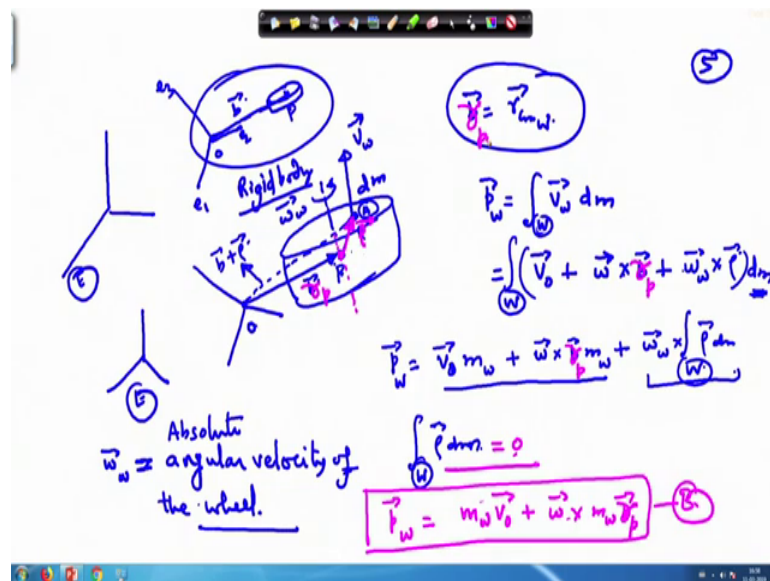 5
e₂
b⃗
a⃗
P
o
e₁
Rigid body
E
E
V⃗_w
dm
ω⃗_w
b⃗+ρ⃗
ρ⃗
P
o
b⃗_p = r⃗_{m_w}
p⃗_w = ∫_W V⃗_w dm
= ∫_W (V⃗_0 + ω⃗ × b⃗_p + ω⃗_w × ρ⃗) dm
p⃗_w = V⃗_0 m_w + ω⃗ × b⃗_p m_w + ω⃗_w × ∫_W ρ⃗ dm
ω⃗_w = Absolute
angular velocity of
the wheel.
∫_W ρ⃗ dm = 0
p⃗_w = m_w V⃗_0 + ω⃗ × m_w b⃗_p — B